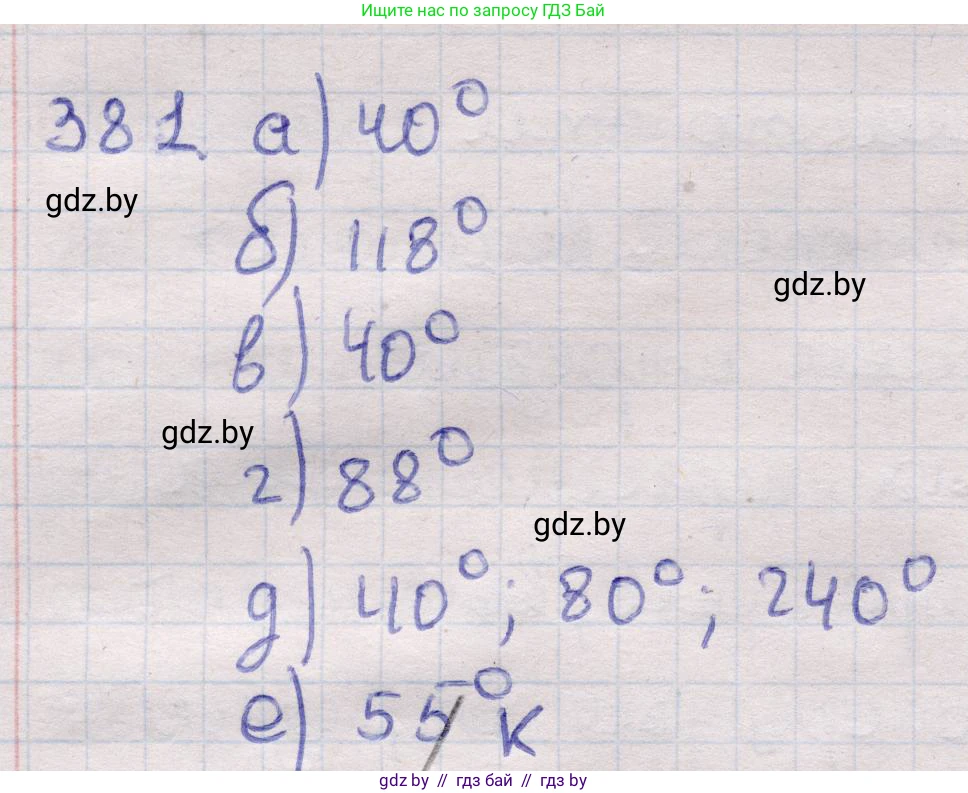 Ищите нас по запросу ГДЗ Бай
381 а) 40°
gdz.by
б) 118°
gdz.by
в) 40°
gdz.by
г) 88°
gdz.by
д) 40°; 80°; 240°
е) 55° к
gdz.by // гдз бай // гдз by